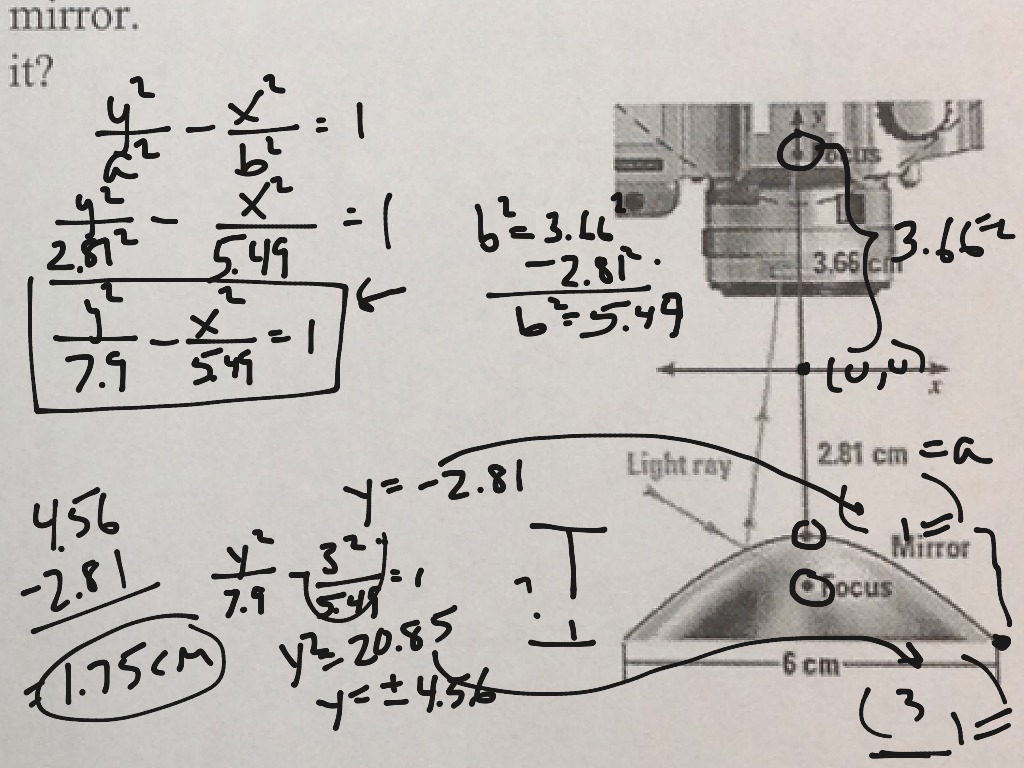 mirror.
it?
y²/a² - x²/b² = 1
y²/2.81² - x²/5.49 = 1
y²/7.9 - x²/5.49 = 1
b² = 3.66²
- 2.81²
b² = 5.49
y
Focus
3.66 cm
3.66 = c
(0,0)
x
2.81 cm = a
Light ray
Mirror
Focus
6 cm
( , ) =
(3 , ) =
y = -2.81
y²/7.9 - 3²/5.49 = 1
y² = 20.85
y = ± 4.56
?
4.56
- 2.81
1.75 cm